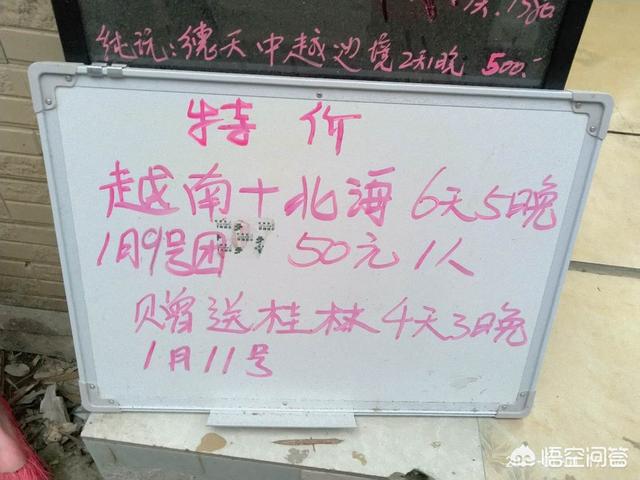 纯玩:德天中越边境2天1晚 500.-
特价
越南+北海6天5晚
1月9号团 50元1人
赠送桂林4天3晚
1月11号
悟空问答